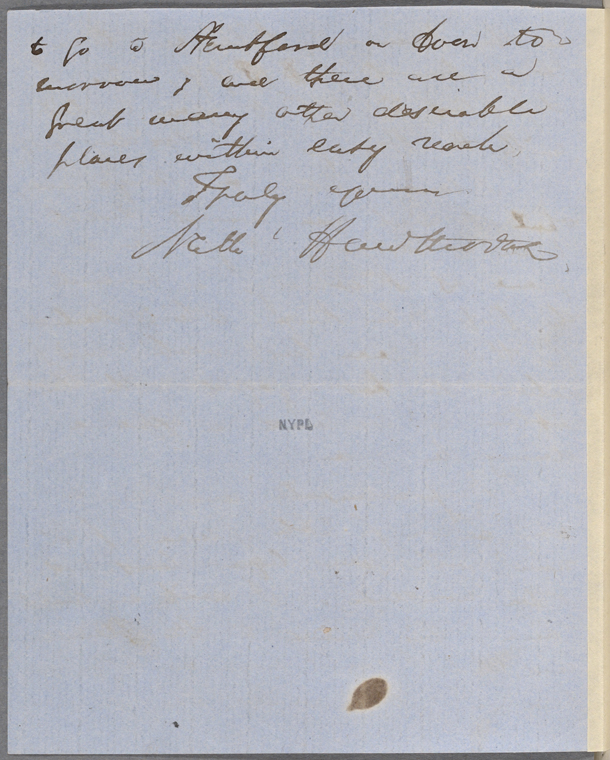 to go to Stratford on Avon to-
morrow; and there are a
great many other desirable
places within easy reach.
Truly yours
Nathl Hawthorne
NYPL